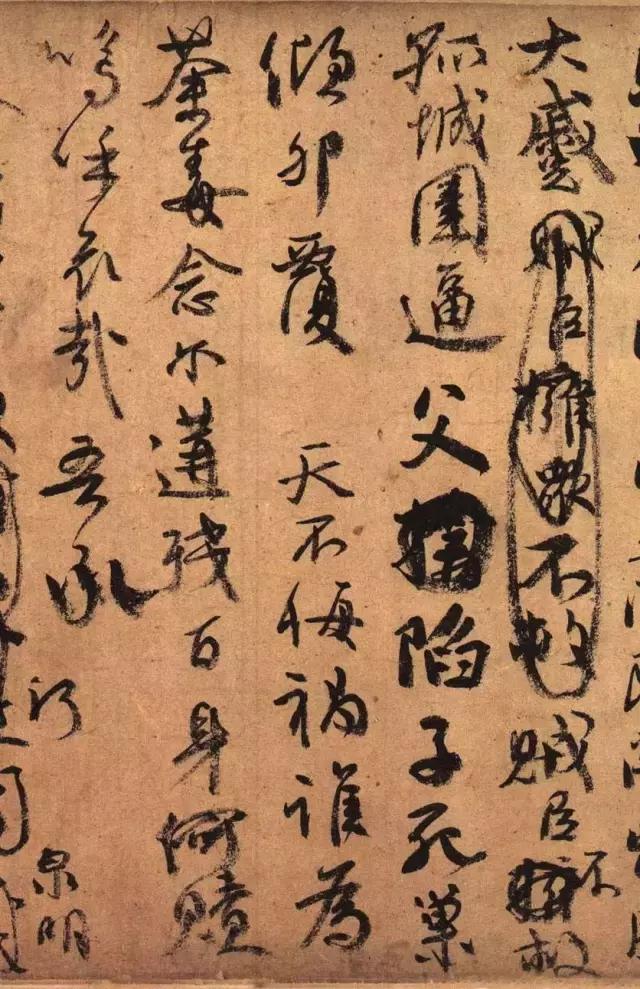 大蹙賊臣擁眾不救賊臣不救
孤城圍逼父陷子死巢
傾卵覆 天不悔禍誰為
荼毒念爾遘殘百身何贖
嗚呼哀哉吾承
泉明